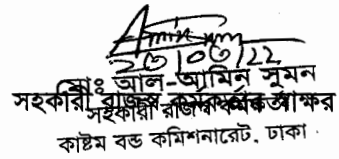 Amin Sumon
২৩/০৩/22
মোঃ আল-আমিন সুমন
সহকারী রাজস্ব কর্মকর্তার স্বাক্ষর
সহকারী রাজস্ব কর্মকর্তা
কাষ্টম বন্ড কমিশনারেট, ঢাকা